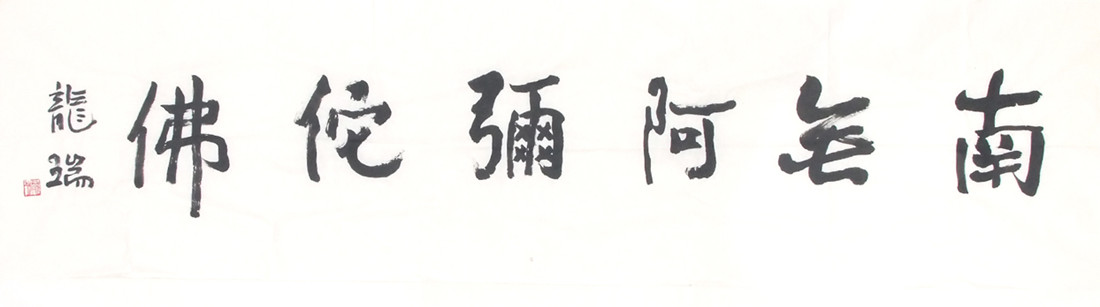 南無阿彌陀佛
龍瑞